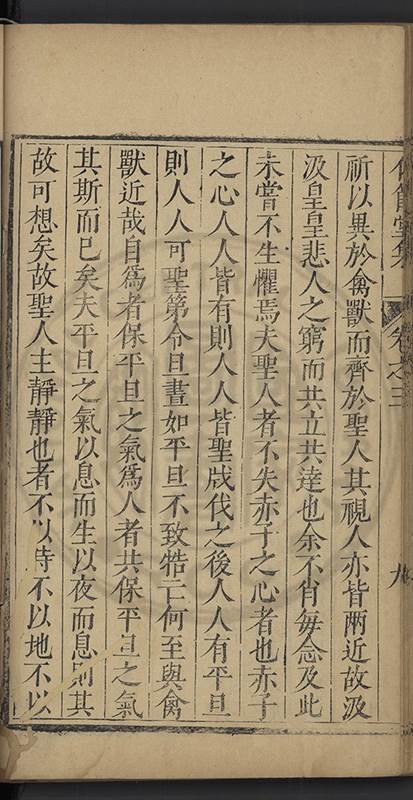 堂集
卷之三
九
祈以異於禽獸而齊於聖人其視人亦皆兩近故汲
汲皇皇悲人之窮而共立共達也余不肖每念及此
未嘗不生懼焉夫聖人者不失赤子之心者也赤子
之心人人皆有則人人皆聖戕伐之後人人有平旦
則人人可聖第令旦晝如平旦不致牿亡何至與禽
獸近哉自為者保平旦之氣為人者共保平旦之氣
其斯而已矣夫平旦之氣以息而生以夜而息則其
故可想矣故聖人主靜靜也者不以時不以地不以